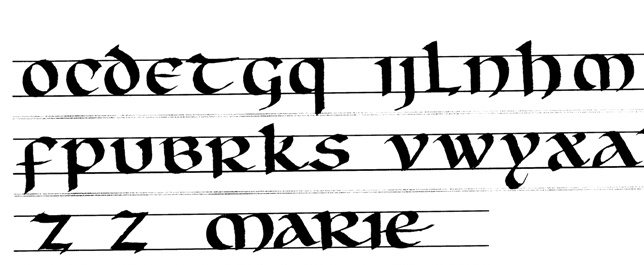 OCDETGQ IJLNHM
FPUBRKS VWYXA
Z Z MARIE